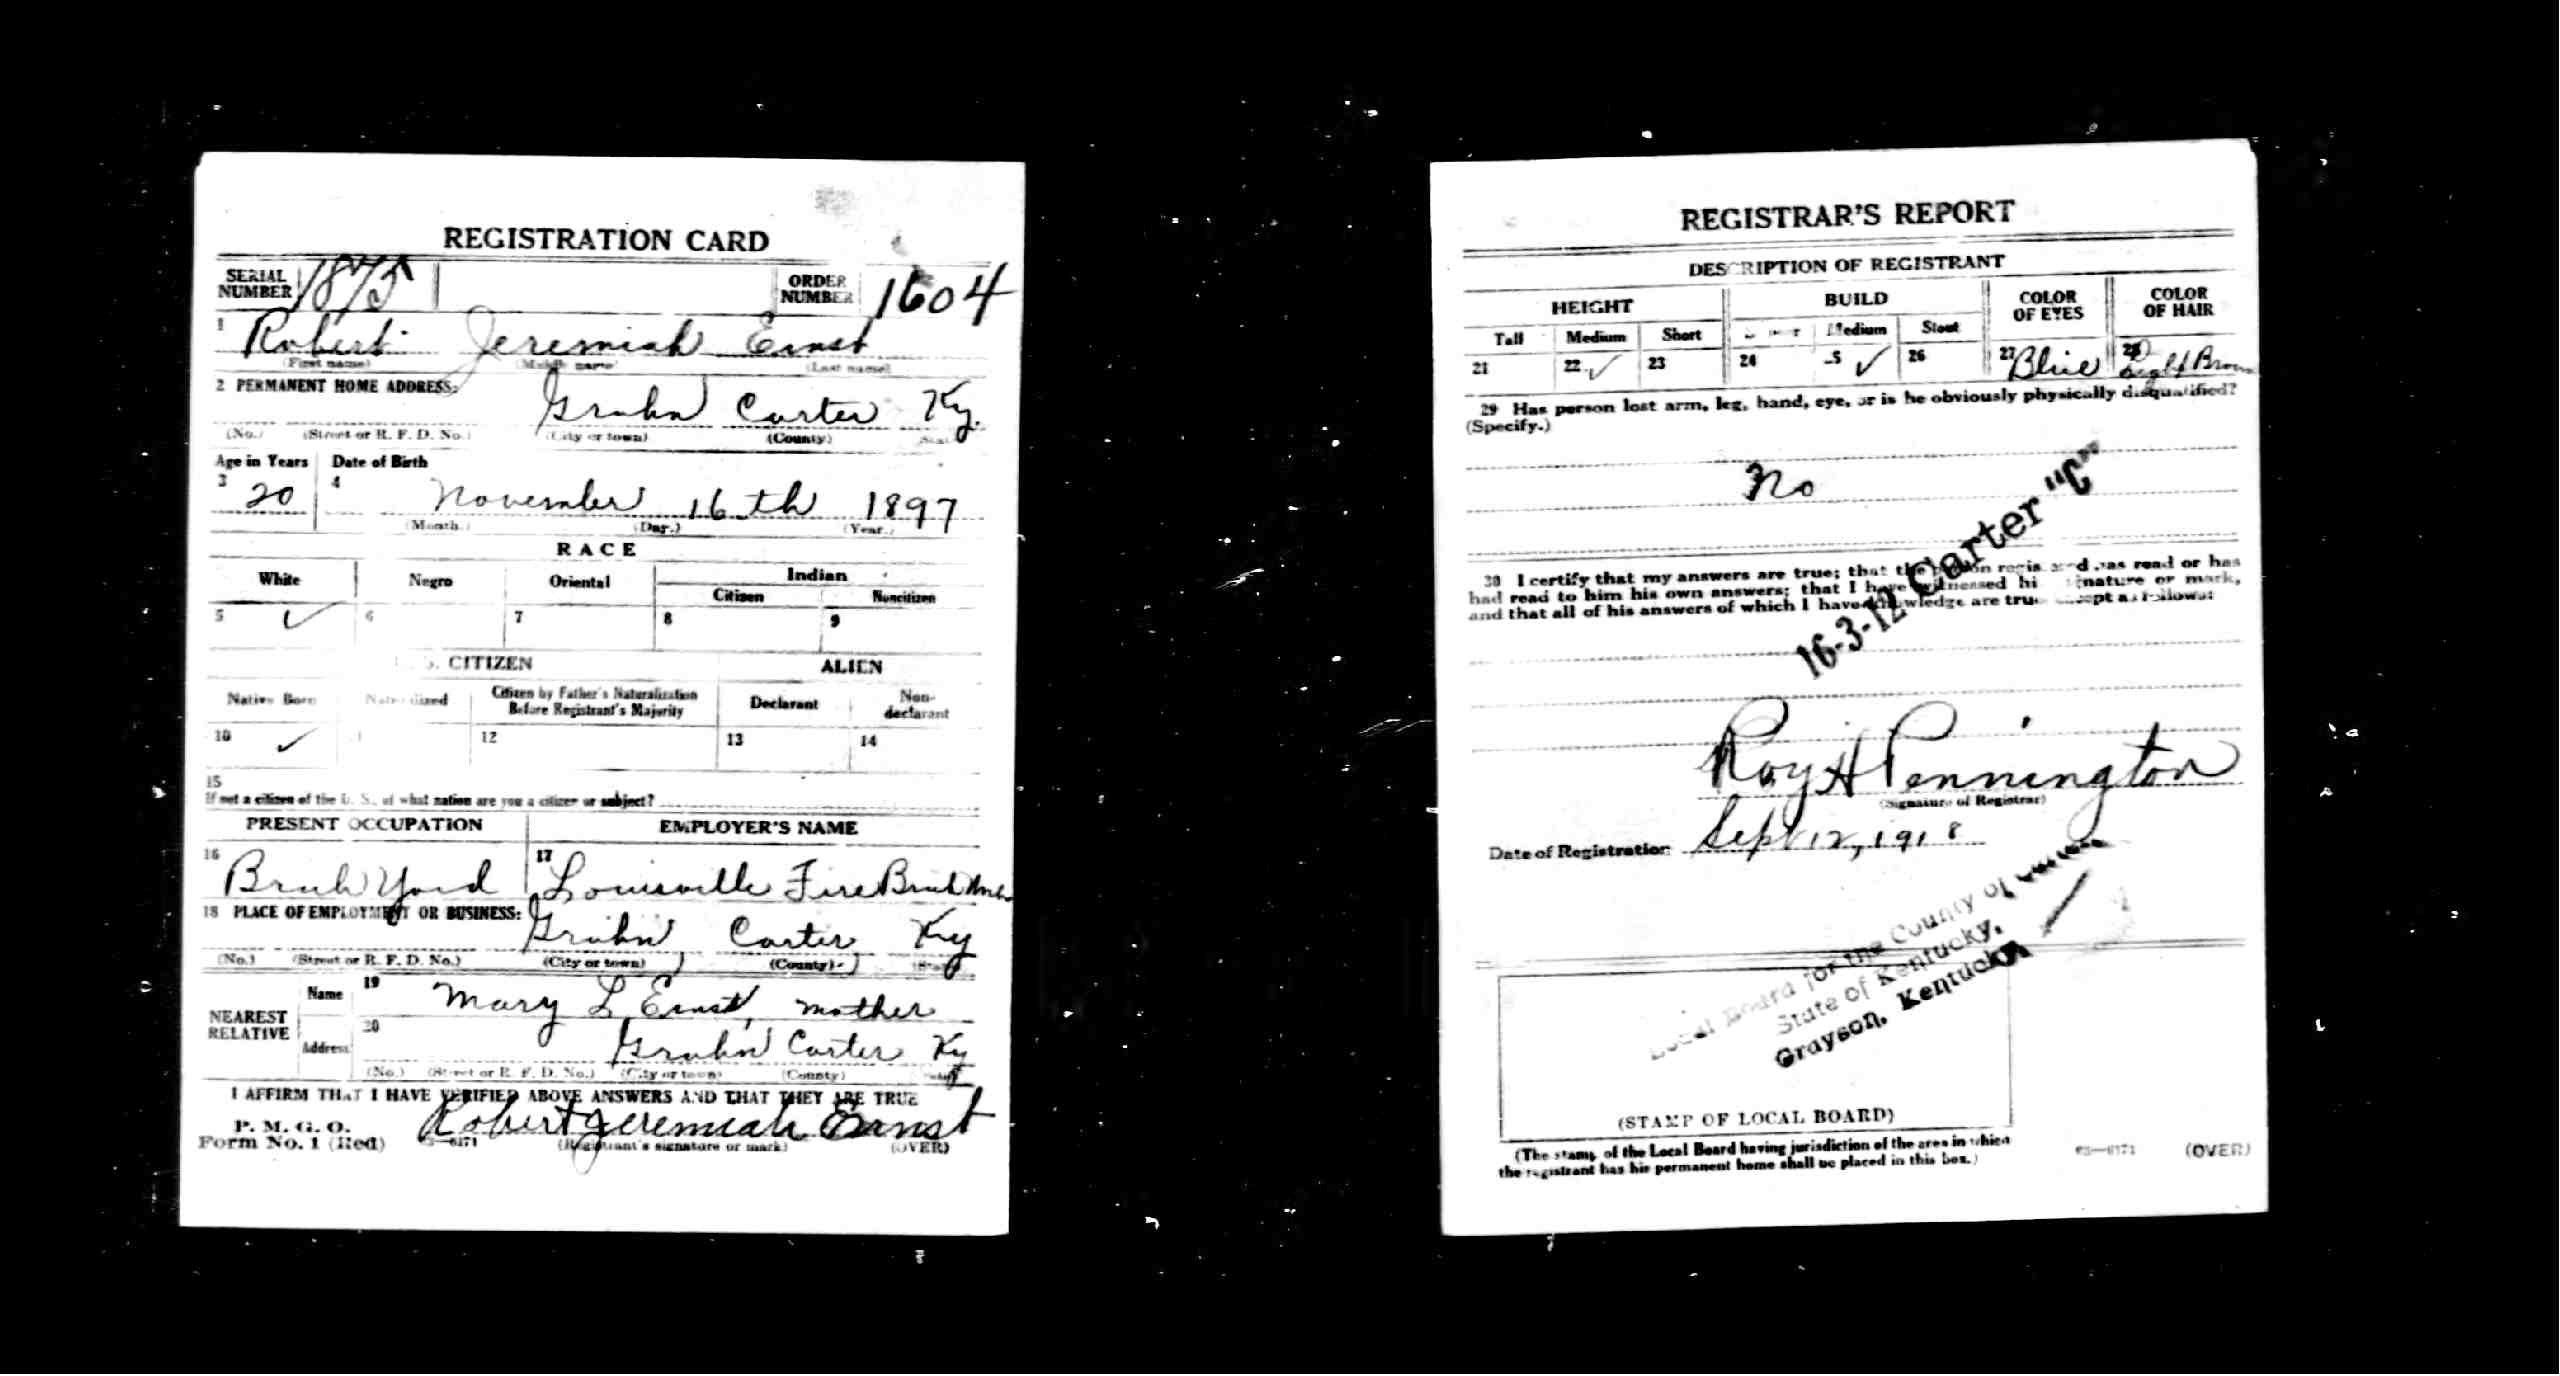 REGISTRATION CARD
SERIAL NUMBER 1875 ORDER NUMBER 1604
1 Robert Jeremiah Ernst
(First name) (Middle name) (Last name)
2 PERMANENT HOME ADDRESS:
Grahn Carter Ky.
(No.) (Street or R. F. D. No.) (City or town) (County) (State)
Age in Years Date of Birth
3 20 4 November 16th 1897
(Month.) (Day.) (Year.)
RACE
White Negro Oriental Indian
Citizen Noncitizen
5 ✓ 6 7 8 9
U. S. CITIZEN ALIEN
Native Born Naturalized Citizen by Father's Naturalization Before Registrant's Majority Declarant Non-declarant
10 ✓ 12 13 14
15
If not a citizen of the U. S., of what nation are you a citizen or subject?
PRESENT OCCUPATION EMPLOYER'S NAME
16 Brick Yard 17 Louisville Fire Brick
18 PLACE OF EMPLOYMENT OR BUSINESS:
Grahn Carter Ky
(No.) (Street or R. F. D. No.) (City or town) (County) (State)
NEAREST RELATIVE Name 19 Mary L Ernst, mother
Address 20 Grahn Carter Ky
(No.) (Street or R. F. D. No.) (City or town) (County) (State)
I AFFIRM THAT I HAVE VERIFIED ABOVE ANSWERS AND THAT THEY ARE TRUE
P. M. G. O.
Form No. 1 (Red) Robert Jeremiah Ernst
(Registrant's signature or mark) (OVER)
REGISTRAR'S REPORT
DESCRIPTION OF REGISTRANT
HEIGHT BUILD COLOR OF EYES COLOR OF HAIR
Tall Medium Short Medium Stout
21 22 ✓ 23 24 25 ✓ 26 27 Blue 28 Light Brown
29 Has person lost arm, leg, hand, eye, or is he obviously physically disqualified?
(Specify.)
No
16-3-12 Carter "C"
30 I certify that my answers are true; that the person registered has read or has
had read to him his own answers; that I have witnessed his signature or mark,
and that all of his answers of which I have knowledge are true, except as follows:
Roy H Pennington
(Signature of Registrar)
Date of Registration Sept 12, 1918
Local Board for the County of
State of Kentucky,
Grayson, Kentucky
(STAMP OF LOCAL BOARD)
(The stamp of the Local Board having jurisdiction of the area in which
the registrant has his permanent home shall be placed in this box.)
03—6171 (OVER)